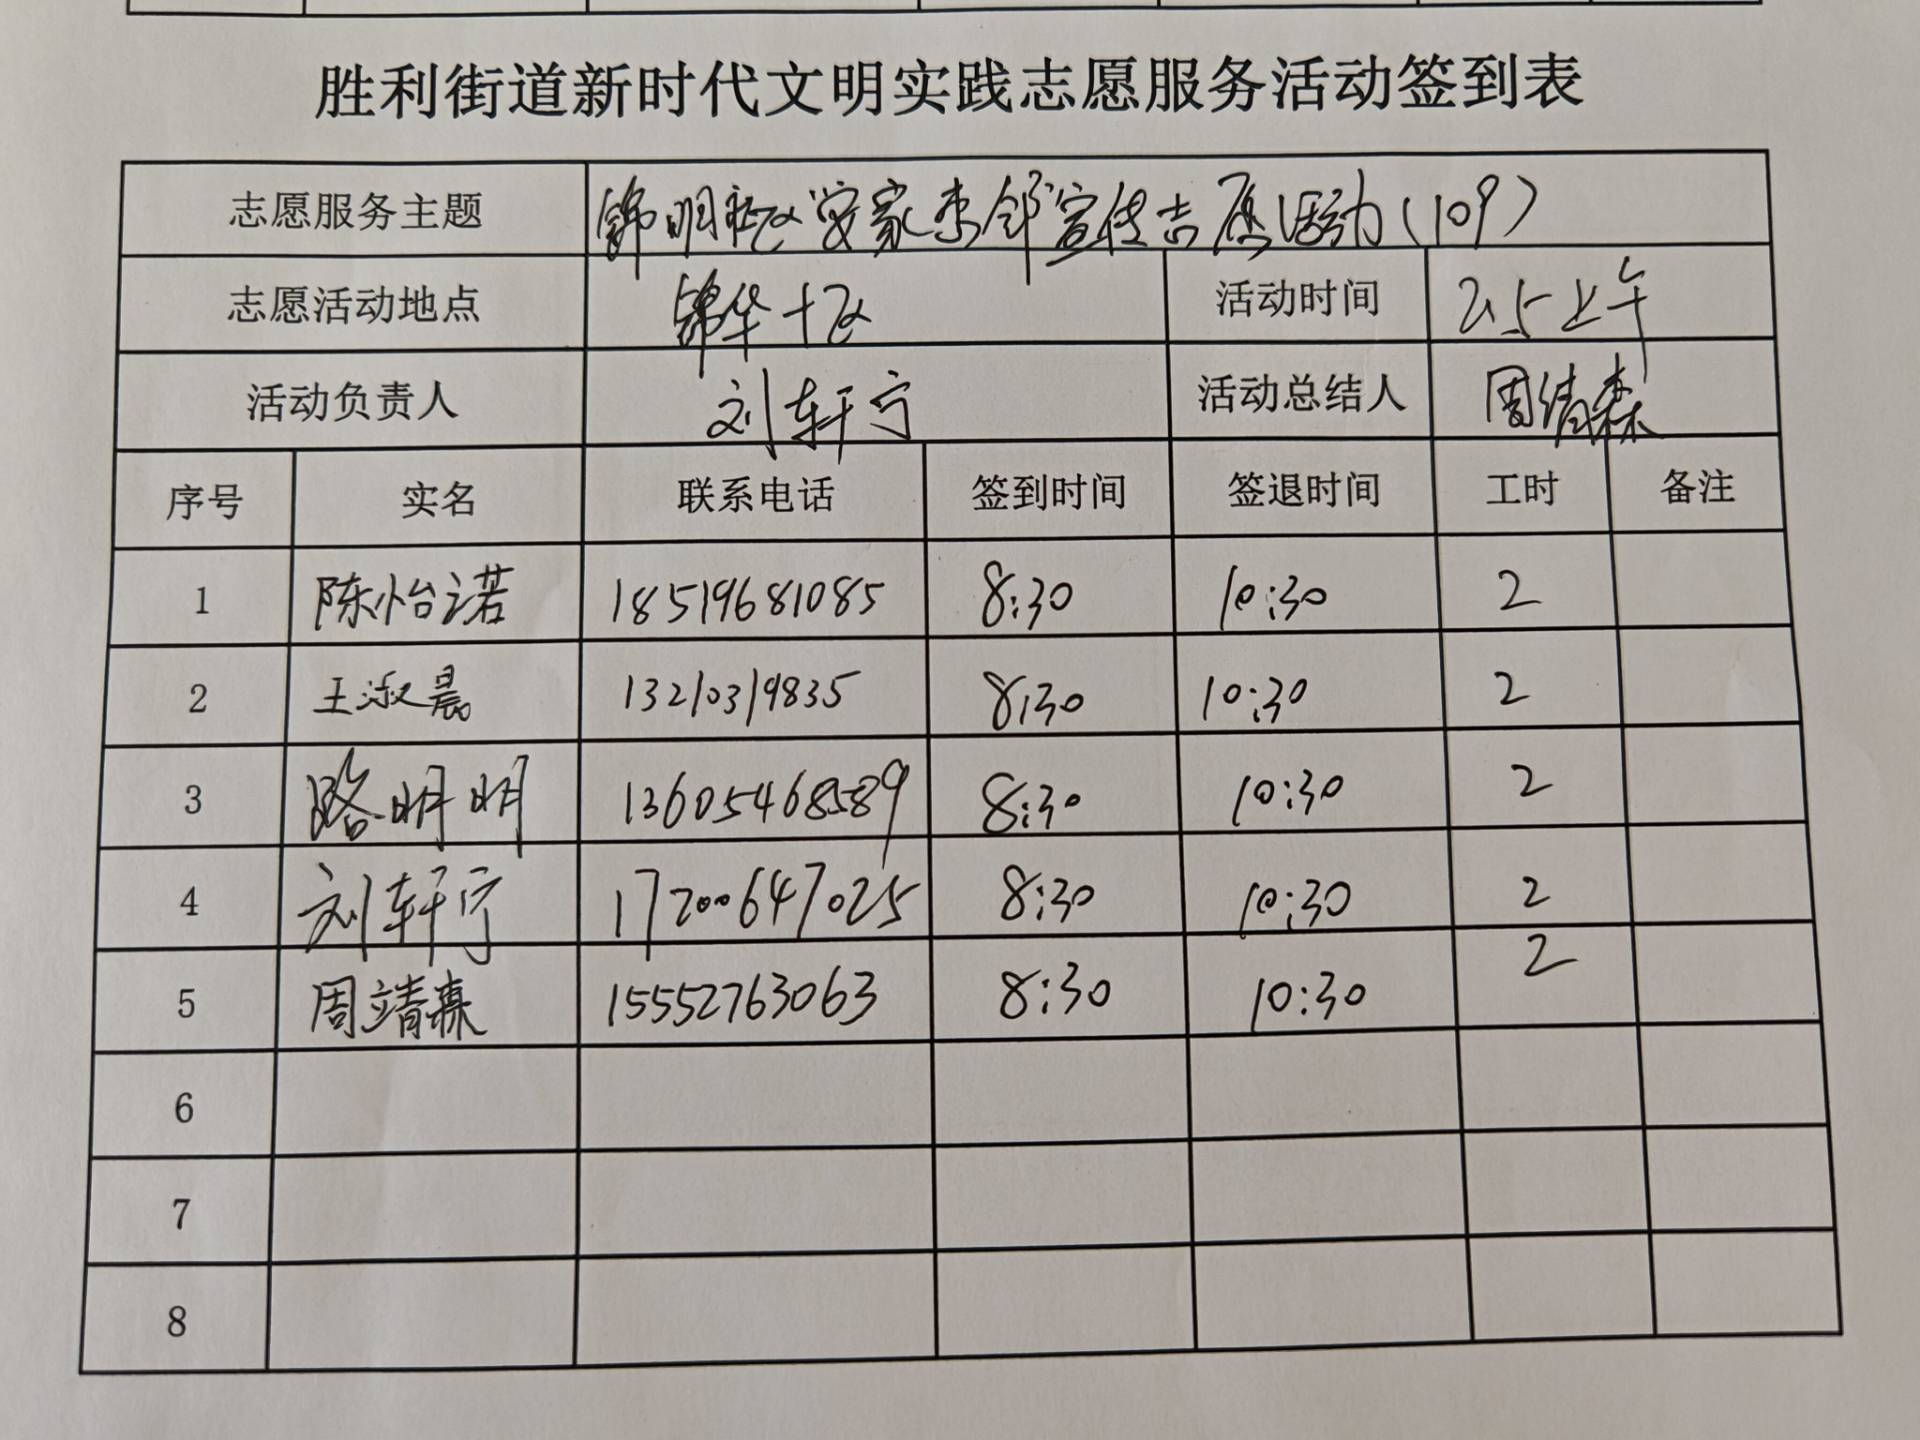 胜利街道新时代文明实践志愿服务活动签到表
志愿服务主题 锦明社区 安家 邻 宣传志愿活动（109）
志愿活动地点 锦华十区 活动时间 2.5上午
活动负责人 刘轩宁 活动总结人 周靖森
序号 实名 联系电话 签到时间 签退时间 工时 备注
1 陈怡诺 18519681085 8:30 10:30 2
2 王淑晨 13210319835 8:30 10:30 2
3 路明明 13605468589 8:30 10:30 2
4 刘轩宁 17200647025 8:30 10:30 2
5 周靖森 15552763063 8:30 10:30 2
6
7
8